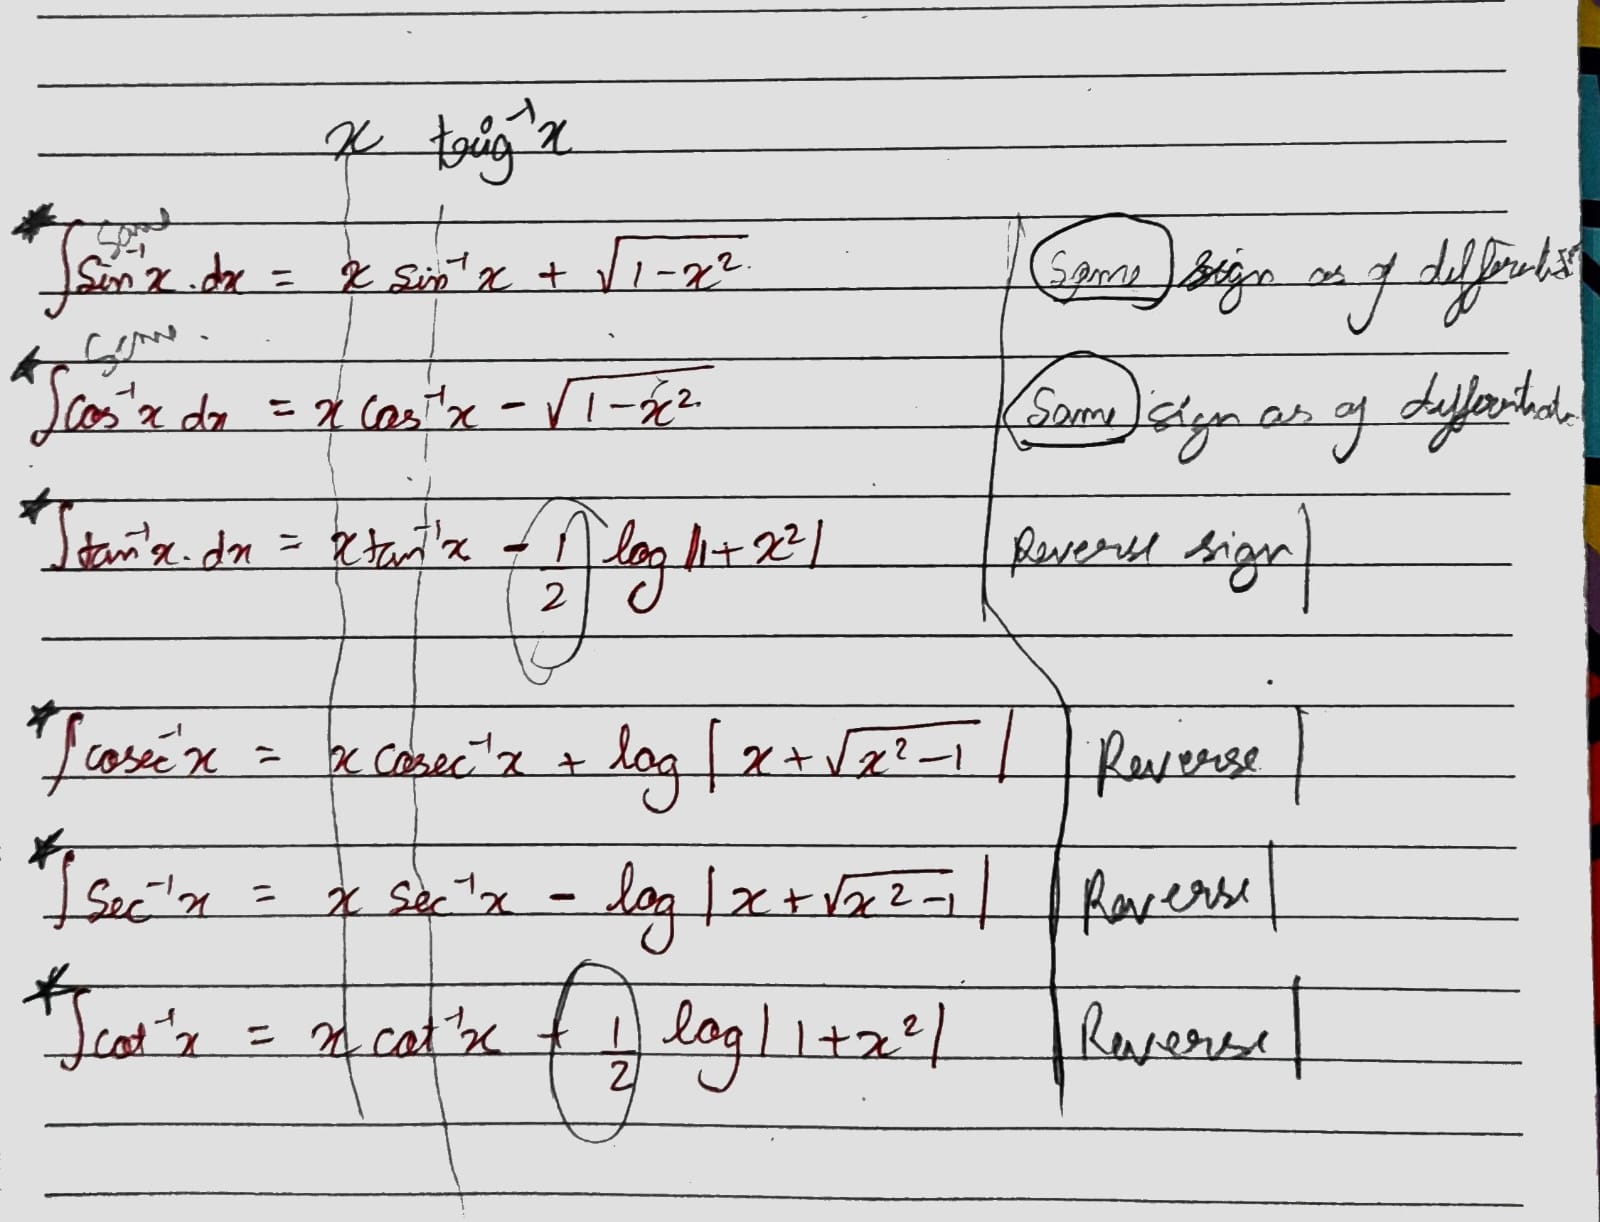 x trig⁻¹x
Same
∫sin⁻¹x.dx = x sin⁻¹x + √(1-x²) | Same sign as of
Same
∫cos⁻¹x dx = x cos⁻¹x - √(1-x²) | Same sign as of
∫tan⁻¹x.dx = x tan⁻¹x - 1/2 log |1+x²| | Reverse sign |
∫cosec⁻¹x = x cosec⁻¹x + log | x+√(x²-1) | | Reverse |
∫sec⁻¹x = x sec⁻¹x - log | x+√(x²-1) | | Reverse |
∫cot⁻¹x = x cot⁻¹x + 1/2 log | 1+x² | | Reverse |